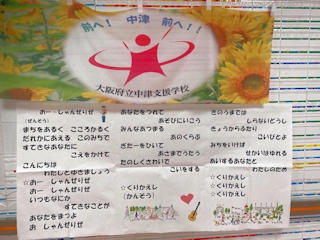 前へ! 中津 前へ!!
大阪府立中津支援学校
おー しゃんぜりぜ
(ぜんそう)
まちをあるく こころかるく
だれかにあえる このみちで
すてきなあなたに
こえをかけて
こんにちは
わたしとゆきましょう
☆おー しゃんぜりぜ
おー しゃんぜりぜ
いつもなにか
すてきなことが
あなたをまつよ
お しゃんぜりぜ
あなたをつれて
あそびにいこう
みんなあつまる
あのくらぶ
ぎたーをひいて
あさまでうたう
たのしくさわいで
こいをする
☆くりかえし
(かんそう)
きのうまでは
しらないどうし
きょうからふたり
こいびとよ
みちをいけば
せかいはゆれる
あいするあなたと
わたしのため
☆くりかえし
☆くりかえし
☆くりかえし